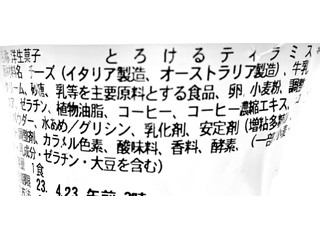 洋生菓子 とろけるティラミス
名 チーズ（イタリア製造、オーストラリア製造）、牛乳
リーム、砂糖、乳等を主要原料とする食品、卵、小麦粉、調整
ゼラチン、植物油脂、コーヒー、コーヒー濃縮エキス、
ウダー、水あめ／グリシン、乳化剤、安定剤（増粘多糖
調整剤、カラメル色素、酸味料、香料、酵素、（一部
成分・ゼラチン・大豆を含む）
1食
23. 4.23 午前